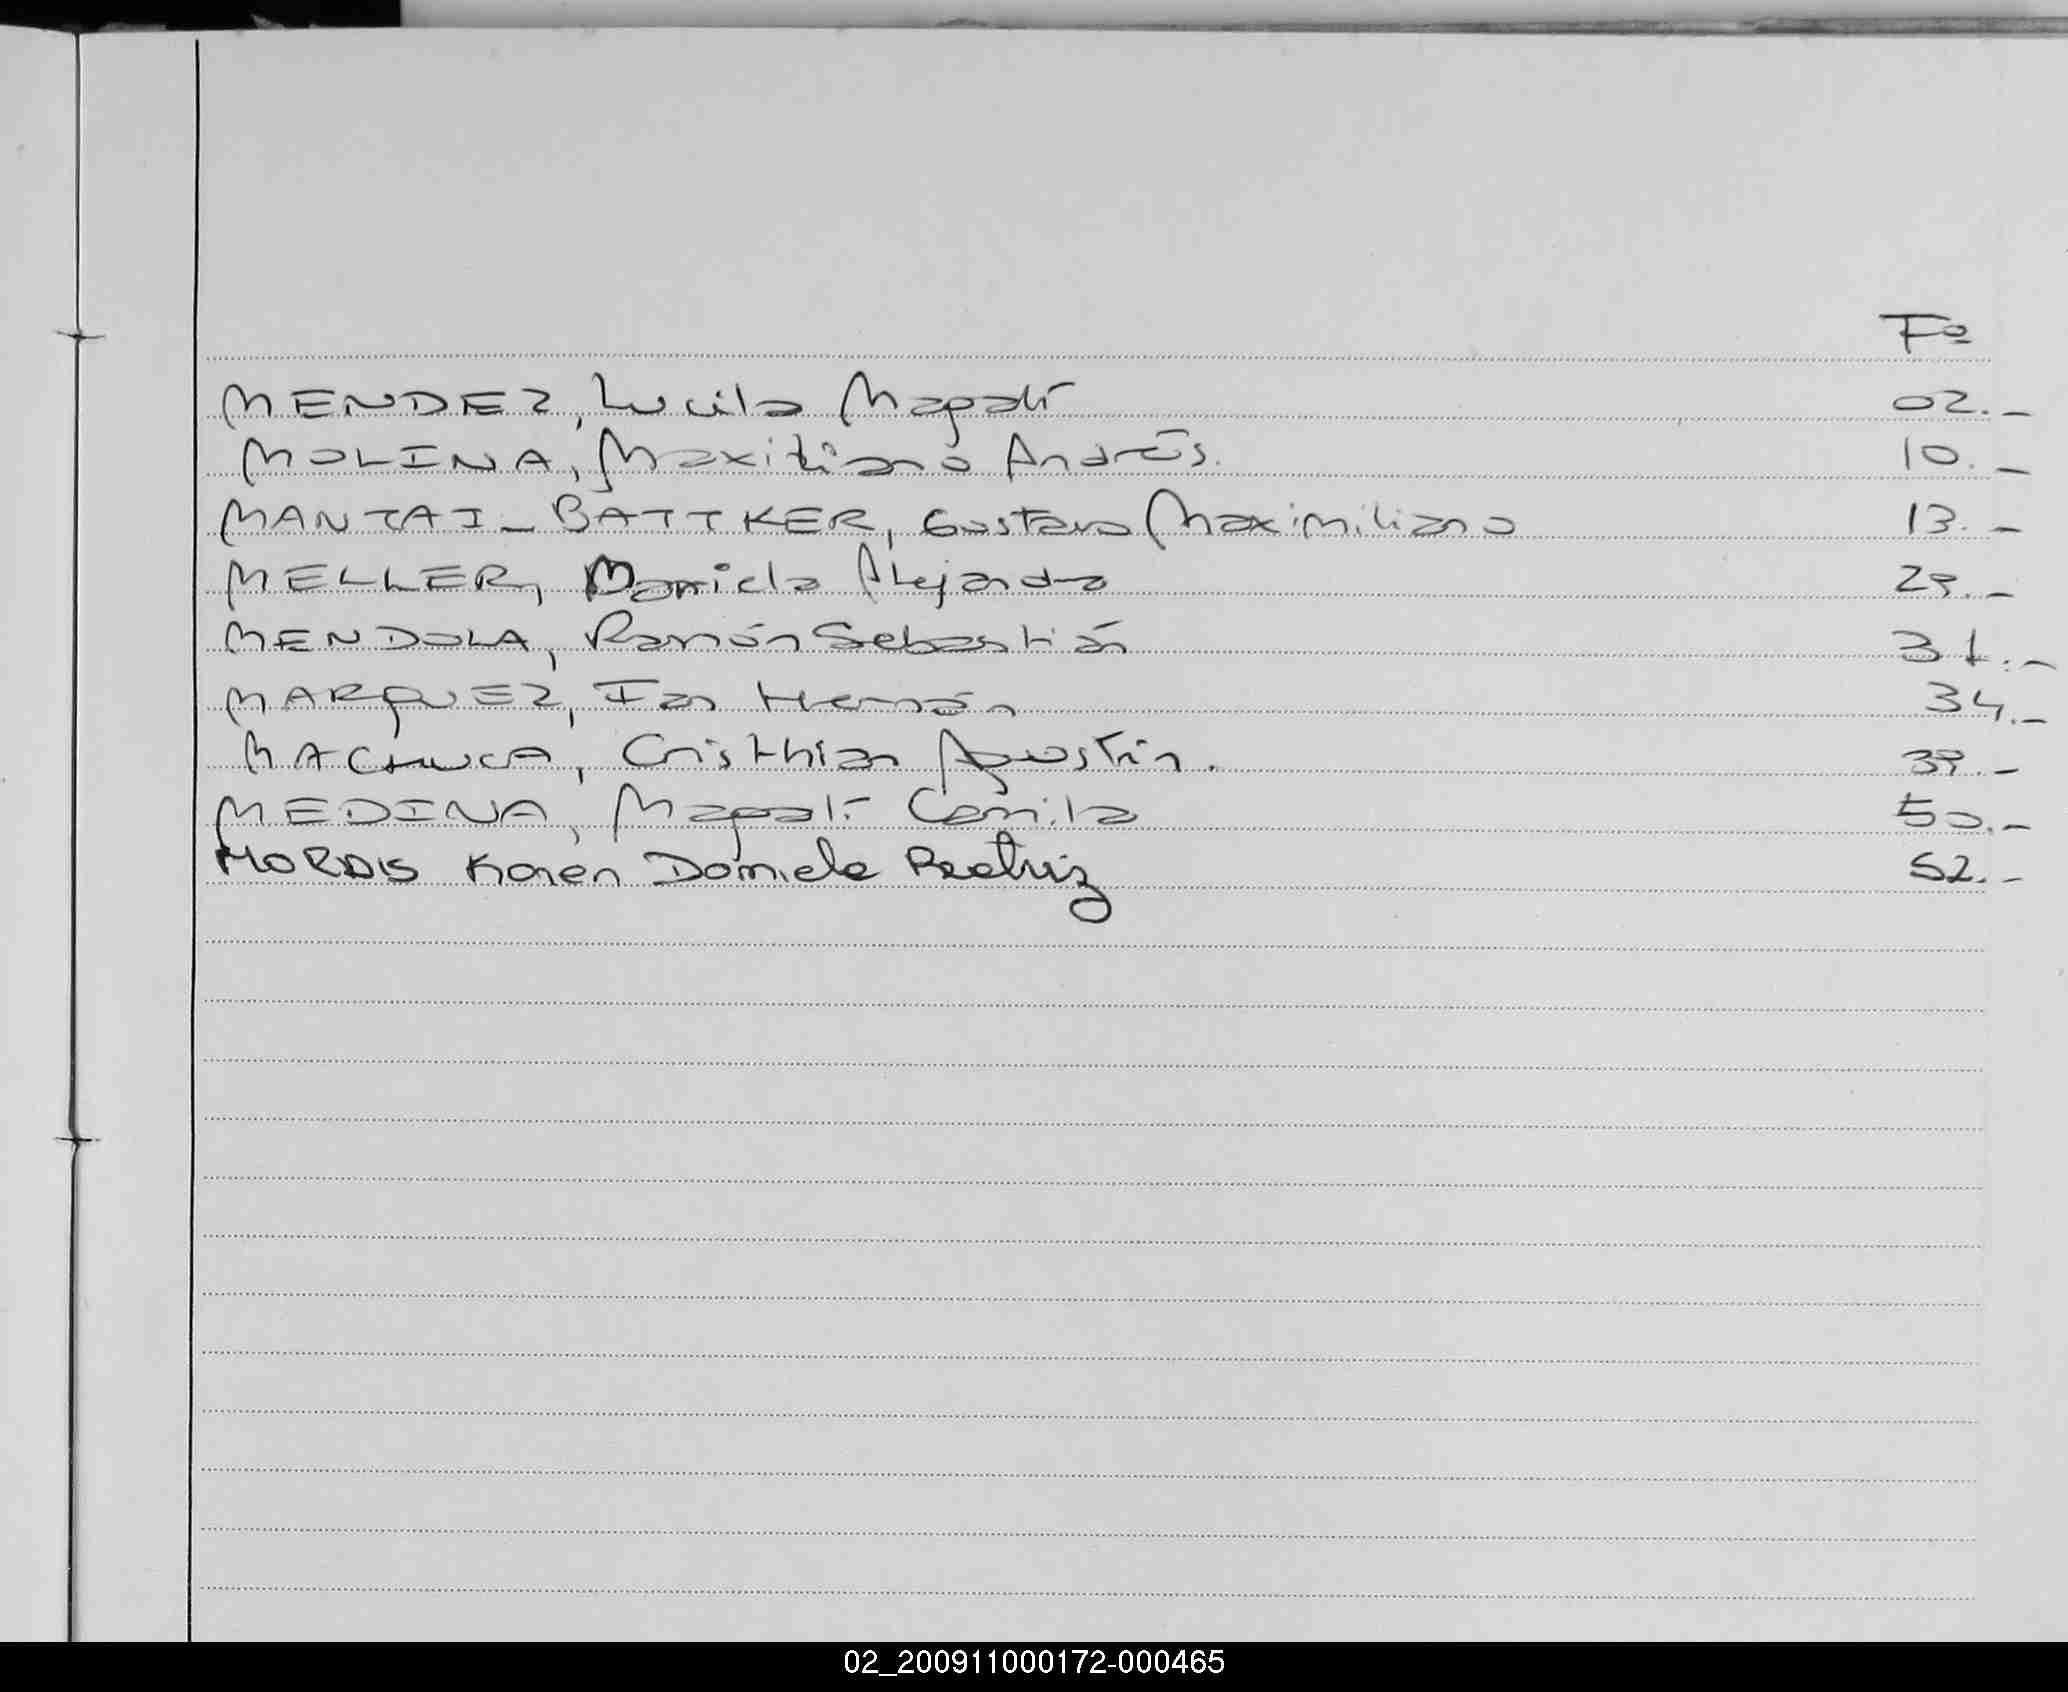 Fº
MENDEZ, Lucila Magalí 02.-
MOLINA, Maxiliano Andrés. 10.-
MANTAI-BATTKER, Gustavo Maximiliano 13.-
MELLER, Daniela Alejandra 29.-
MENDOLA, Ramón Sebastián 31.-
MARQUEZ, Ian Hernán 34.-
MACHUCA, Cristhian Agustín. 39.-
MEDINA, Magalí Camila 50.-
MORAIS Karen Daniela Beatriz 52.-
02_200911000172-000465